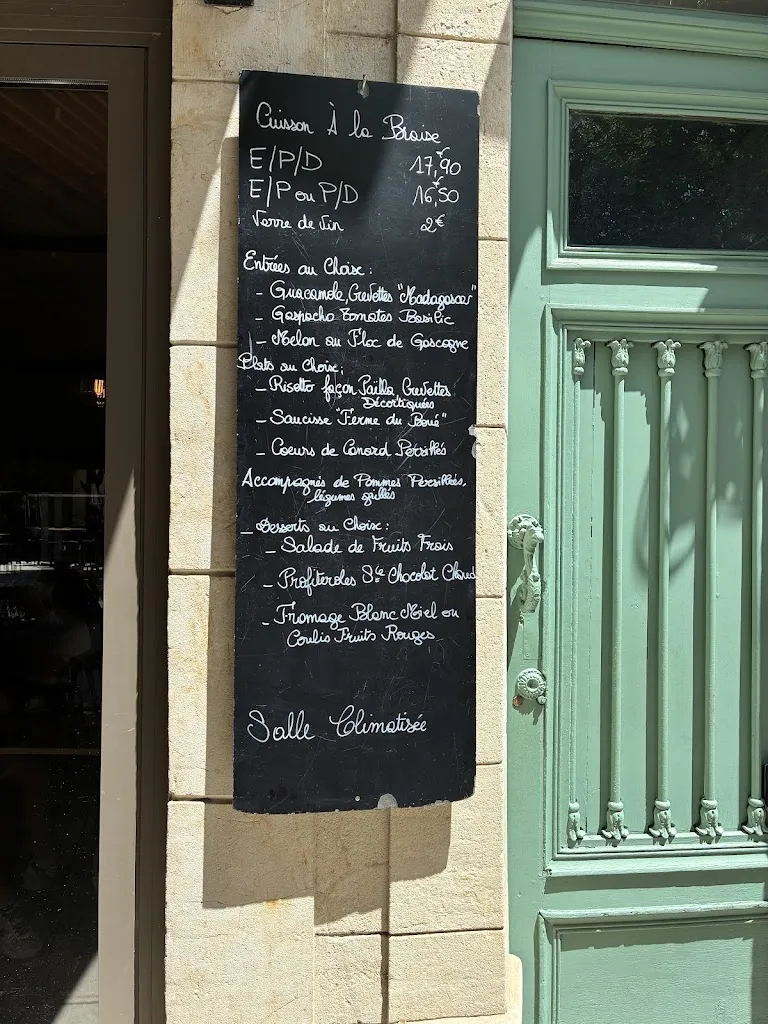 Cuisson À la Braise
E/P/D 17,90
E/P ou P/D 16,50
Verre de Vin 2€
Entrées au Choix :
- Guacamole, Crevettes "Madagascar"
- Gaspacho Tomates Basilic
- Melon au Floc de Gascogne
Plats au Choix :
- Risotto façon Paëlla Crevettes
Décortiquées
- Saucisse "Ferme du Boué"
- Coeurs de Canard Persillés
Accompagnés de Pommes Persillées,
légumes grillés
- Desserts au Choix :
- Salade de Fruits Frais
- Profiteroles Sce Chocolat Chaud
- Fromage Blanc Miel ou
Coulis Fruits Rouges
Salle Climatisée